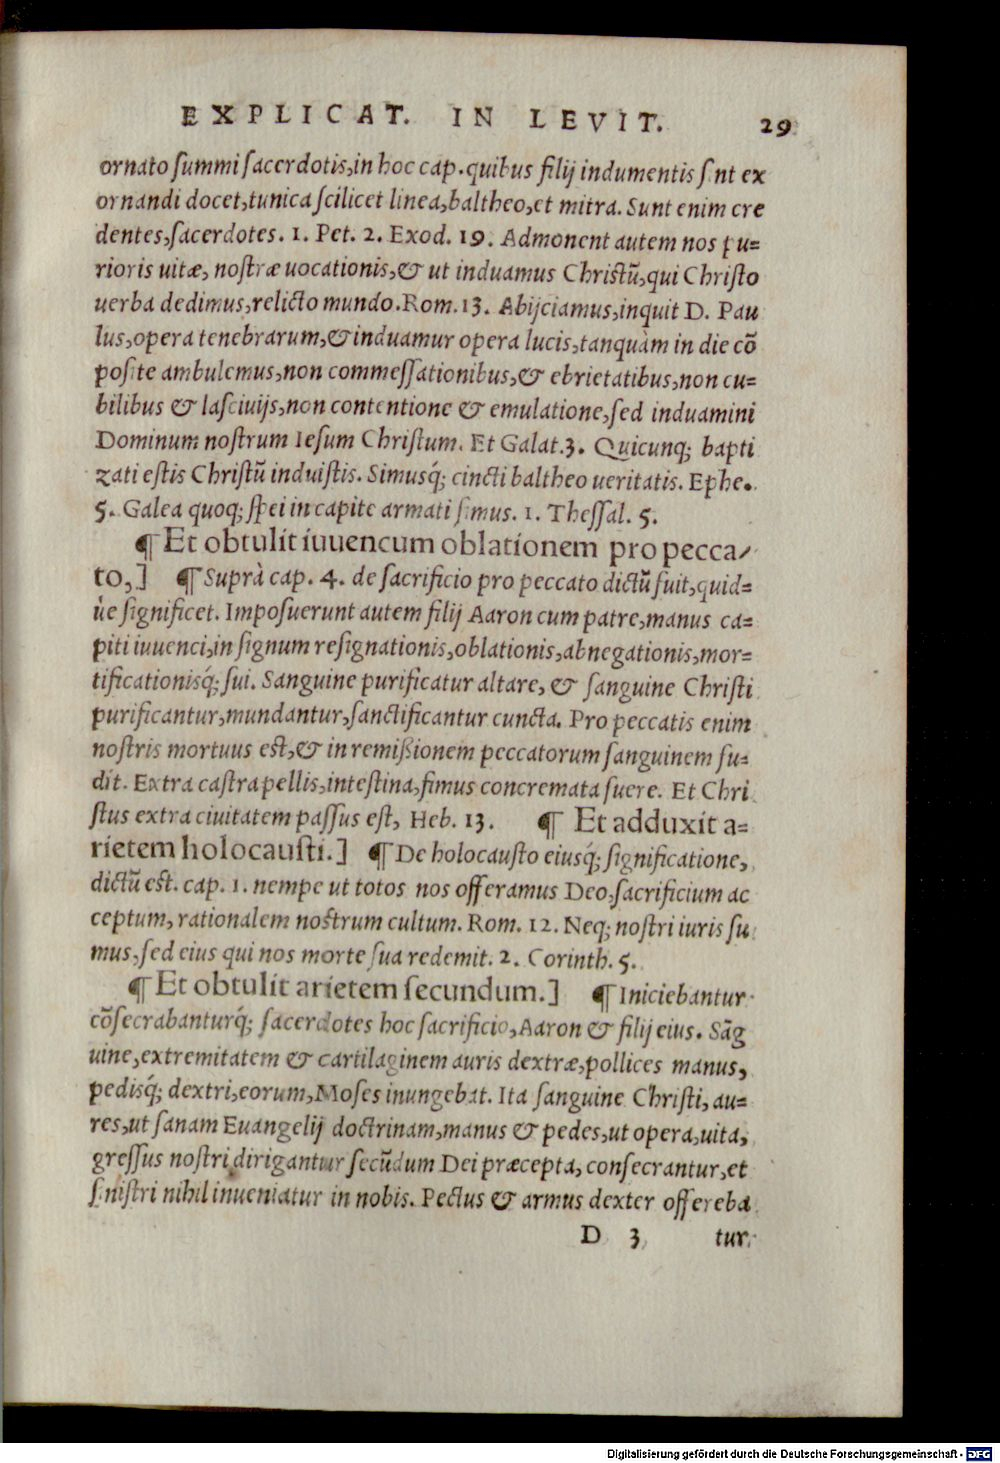 EXPLICAT. IN LEVIT. 29
ornato summi sacerdotis, in hoc cap. quibus filij indumentis sint ex
ornandi docet, tunica scilicet linea, baltheo, et mitra. Sunt enim cre
dentes, sacerdotes. 1. Pet. 2. Exod. 19. Admonent autem nos pu=
rioris uitæ, nostræ uocationis, & ut induamus Christũ, qui Christo
uerba dedimus, relicto mundo. Rom. 13. Abijciamus, inquit D. Pau
lus, opera tenebrarum, & induamur opera lucis, tanquàm in die cõ
posite ambulemus, non commessationibus, & ebrietatibus, non cu=
bilibus & lasciuijs, non contentione & emulatione, sed induamini
Dominum nostrum Iesum Christum. Et Galat. 3. Quicunq; bapti
zati estis Christũ induistis. Simusq́; cincti baltheo ueritatis. Ephe.
5. Galea quoq; spei in capite armati simus. 1. Thessal. 5.
¶ Et obtulit iuuencum oblationem pro pecca-
to,] ¶ Suprà cap. 4. de sacrificio pro peccato dictũ fuit, quid=
ùe significet. Imposuerunt autem filij Aaron cum patre, manus ca=
piti iuuenci, in signum resignationis, oblationis, abnegationis, mor=
tificationisq́; sui. Sanguine purificatur altare, & sanguine Christi
purificantur, mundantur, sanctificantur cuncta. Pro peccatis enim
nostris mortuus est, & in remißionem peccatorum sanguinem fu=
dit. Extra castra pellis, intestina, fimus concremata fuere. Et Chri
stus extra ciuitatem passus est, Heb. 13. ¶ Et adduxit a=
rietem holocausti.] ¶ De holocausto eiusq́; significatione,
dictũ est. cap. 1. nempe ut totos nos offeramus Deo, sacrificium ac
ceptum, rationalem nostrum cultum. Rom. 12. Neq; nostri iuris su
mus, sed eius qui nos morte sua redemit. 2. Corinth. 5.
¶ Et obtulit arietem secundum.] ¶ Iniciebantur
cõsecrabanturq́; sacerdotes hoc sacrificio, Aaron & filij eius. Sãg
uine, extremitatem & cartilaginem auris dextræ, pollices manus,
pedisq́; dextri, eorum, Moses inungebat. Ita sanguine Christi, au=
res, ut sanam Euangelij doctrinam, manus & pedes, ut opera, uita,
gressus nostri dirigantur secũdum Dei præcepta, consecrantur, et
sinistri nihil inueniatur in nobis. Pectus & armus dexter offereba
D 3 tur.
Digitalisierung gefördert durch die Deutsche Forschungsgemeinschaft - DFG